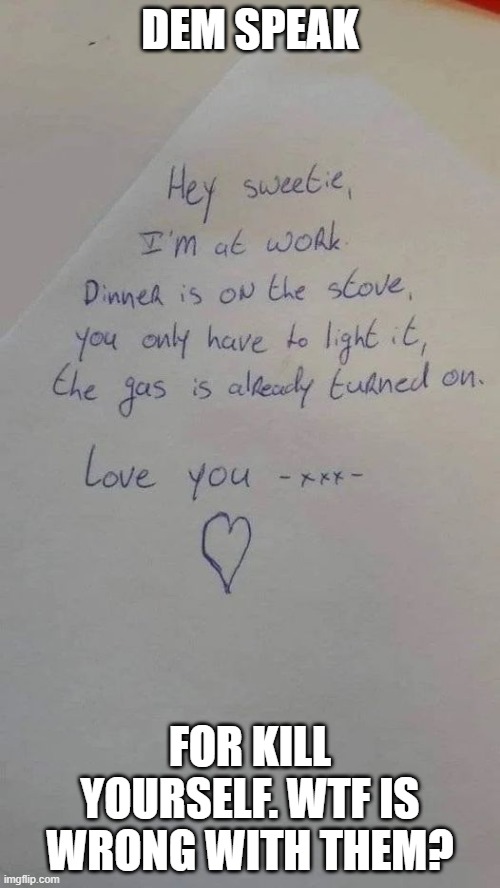 DEM SPEAK
Hey sweetie,
I'm at work.
Dinner is on the stove,
you only have to light it,
the gas is already turned on.
Love you -xxx-
FOR KILL
YOURSELF. WTF IS
WRONG WITH THEM?
imgflip.com